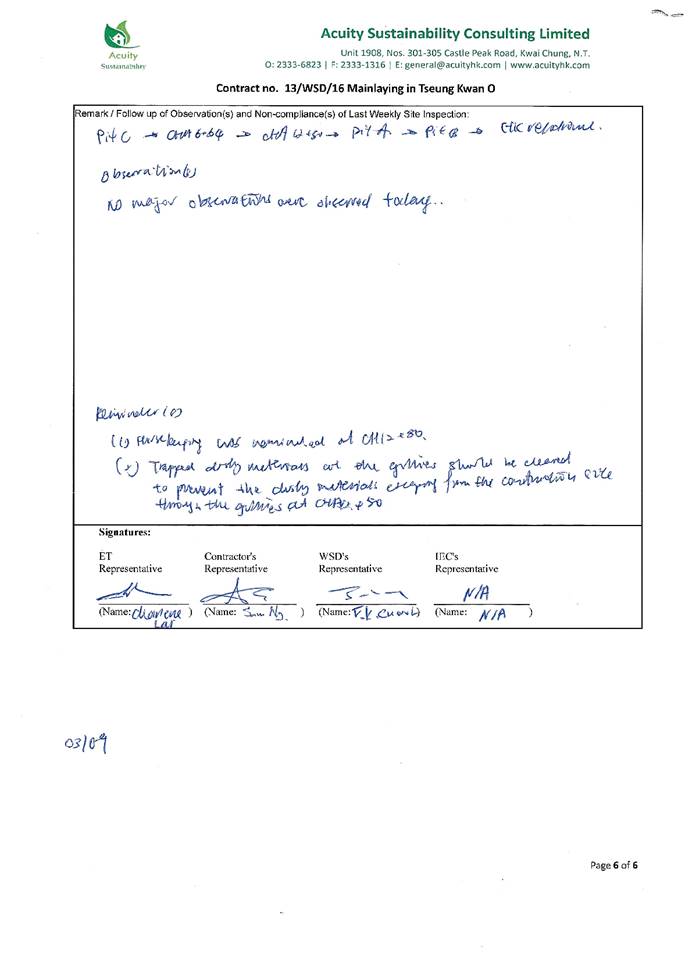 Acuity Sustainability Consulting Limited
Acuity
Sustainability
Unit 1908, Nos. 301-305 Castle Peak Road, Kwai Chung, N.T.
O: 2333-6823 | F: 2333-1316 | E: general@acuityhk.com | www.acuityhk.com
Contract no. 13/WSD/16 Mainlaying in Tseung Kwan O
Remark / Follow up of Observation(s) and Non-compliance(s) of Last Weekly Site Inspection:
Pit C → → → Pit A → Pit B →
Observation(s)
No major observations were observed today..
Reminder(s)
(1) Housekeeping was reminded at
(2) Trapped dusty materials at the gullies should be cleared
to prevent the dusty materials escaping from the construction site
through the gullies at
Signatures:
ET Representative
Contractor's Representative
WSD's Representative
IEC's Representative
N/A
(Name: )
(Name: )
(Name: )
(Name: N/A )
03/09
Page 6 of 6